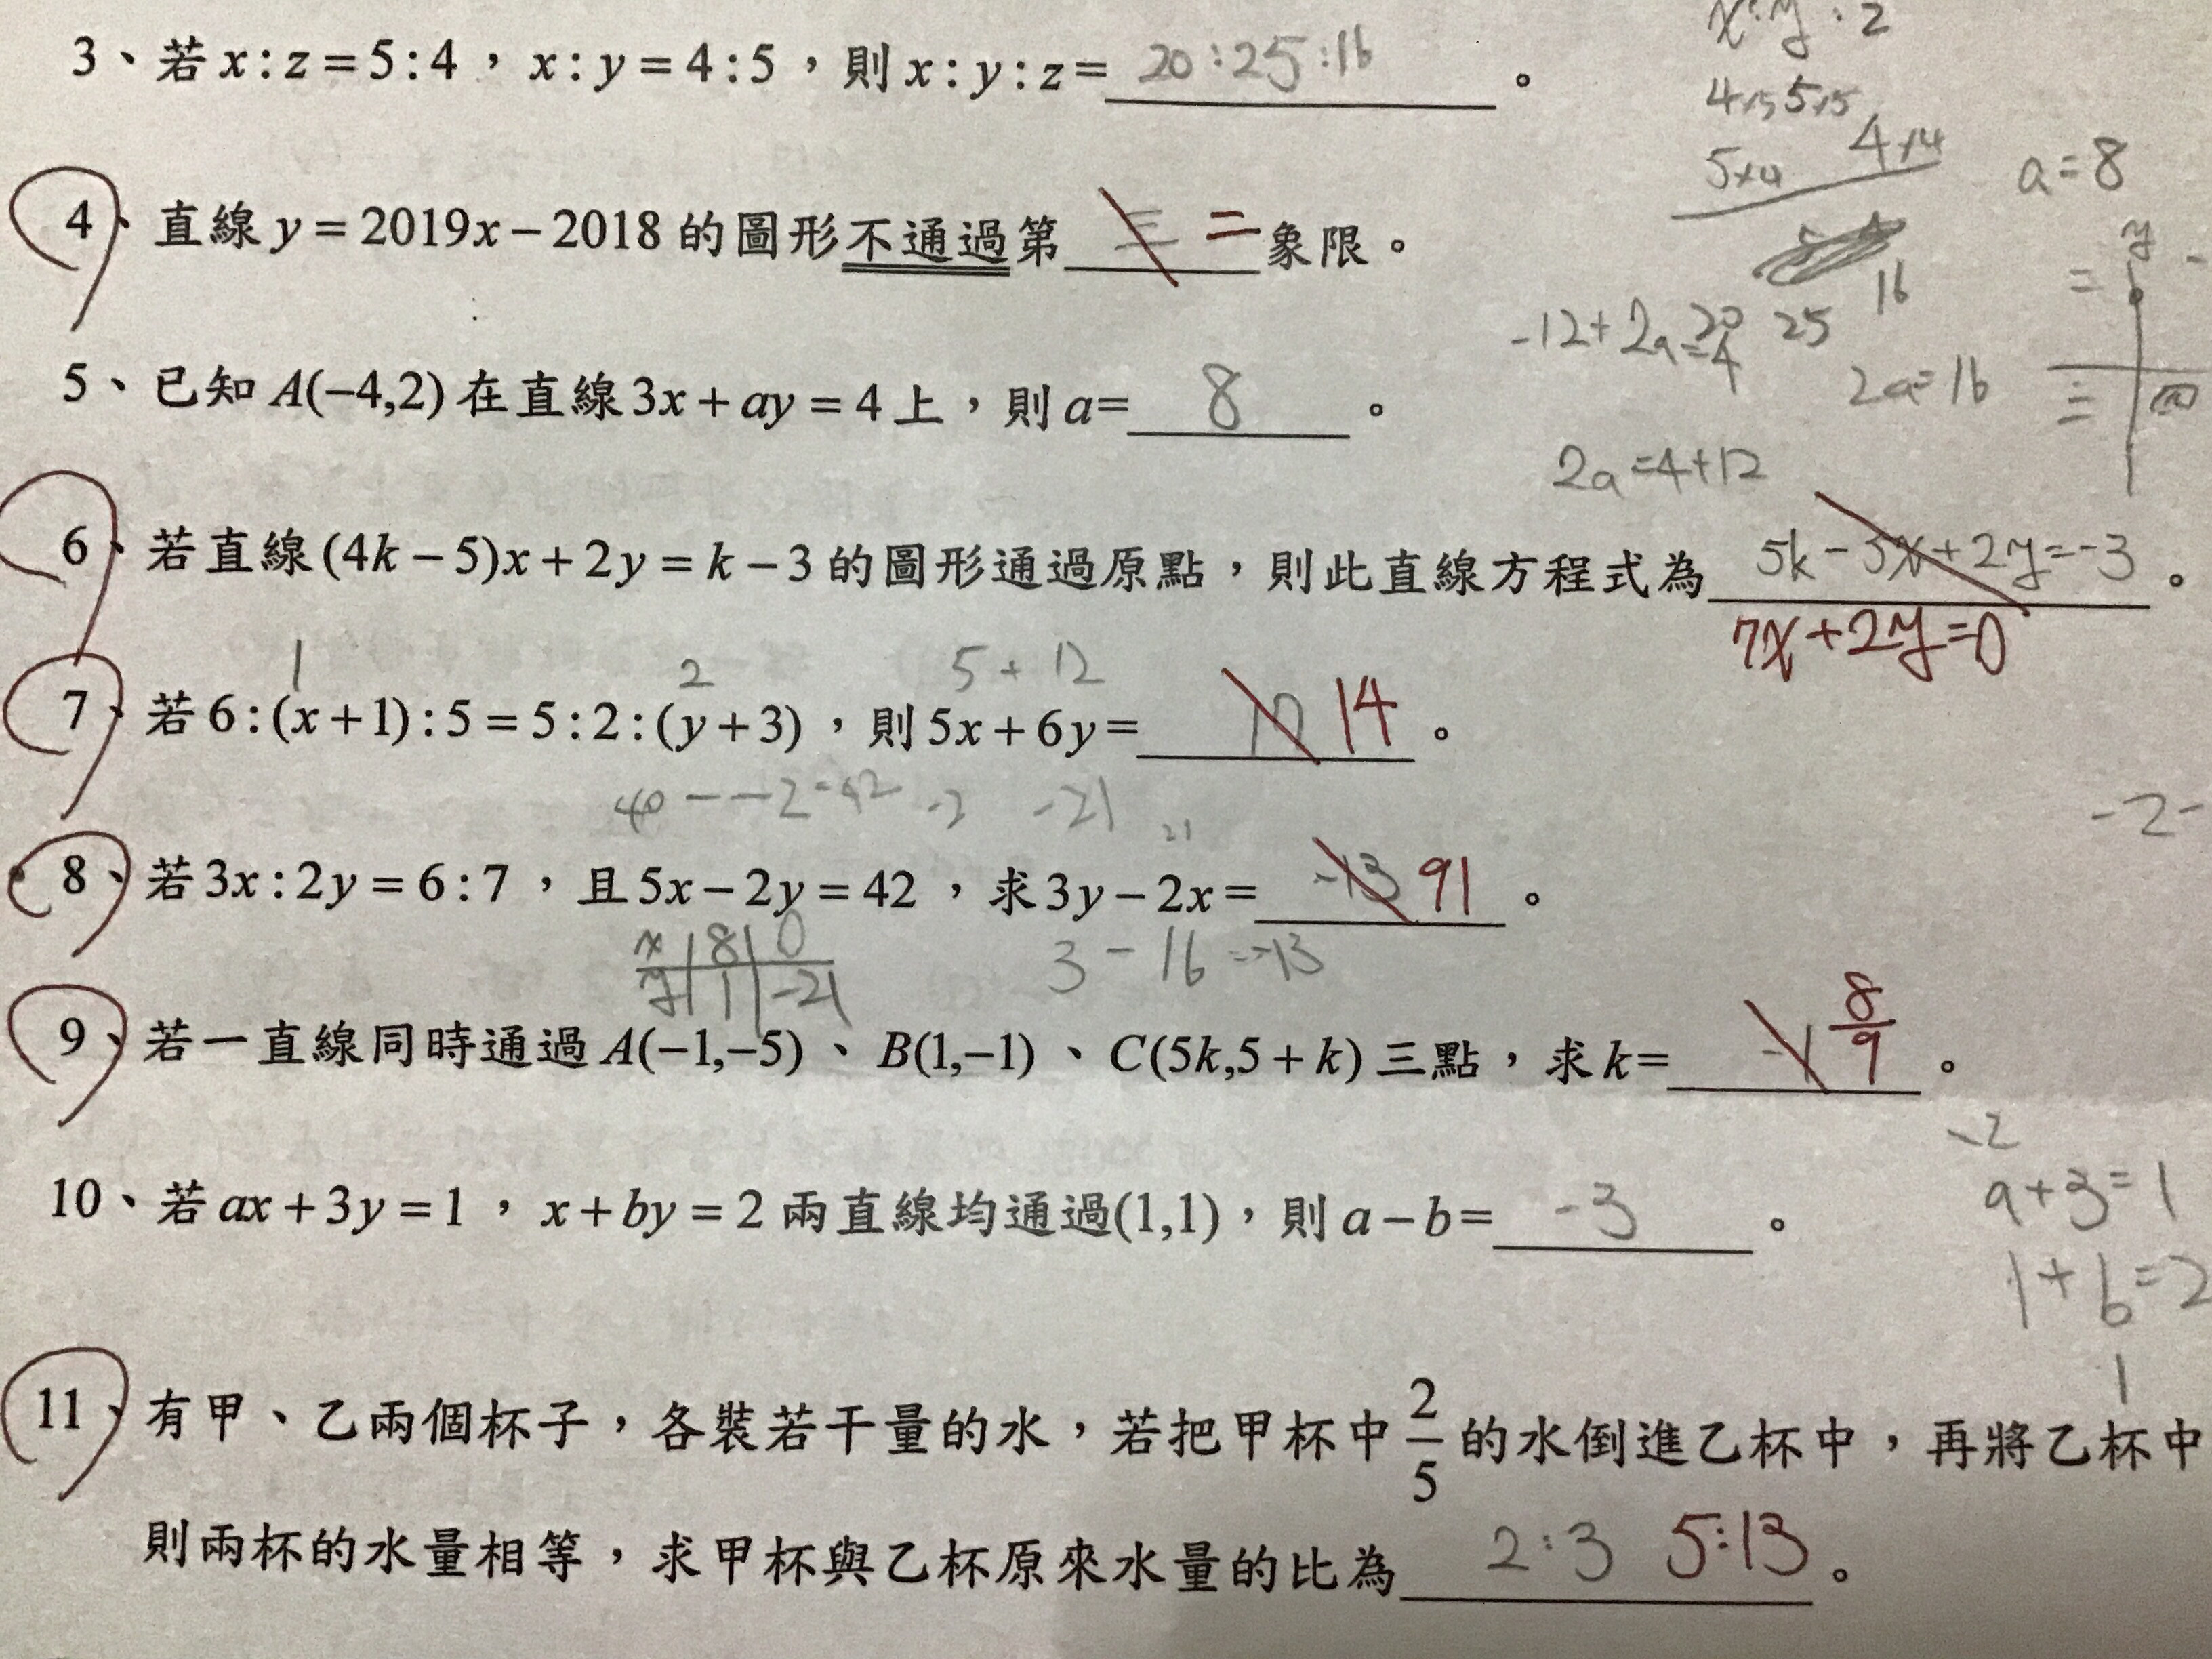 x:y:z
3、若 x:z=5:4，x:y=4:5，則 x:y:z= 20:25:16 。
4×5 5×5
5×4 4×4
a=8
4、直線 y=2019x−2018 的圖形不通過第 三 二 象限。
y
16
二
-12+2a=4 20 25
2a=16
三 四
5、已知 A(−4,2) 在直線 3x+ay=4 上，則 a= 8 。
2a=4+12
6、若直線 (4k−5)x+2y=k−3 的圖形通過原點，則此直線方程式為 5k-5x+2y=-3 。
7x+2y=0
1 2 5+12
7、若 6:(x+1):5=5:2:(y+3)，則 5x+6y= 17 14 。
40--2=42 -2 -21
21
-2-
8、若 3x:2y=6:7，且 5x−2y=42，求 3y−2x= -13 91 。
x 8 0
y 1 -21
3-16=-13
9、若一直線同時通過 A(−1,−5)、B(1,−1)、C(5k,5+k) 三點，求 k= -1 8/9 。
-2
a+3=1
10、若 ax+3y=1，x+by=2 兩直線均通過(1,1)，則 a−b= -3 。
1+b=2
1
11、有甲、乙兩個杯子，各裝若干量的水，若把甲杯中 2/5 的水倒進乙杯中，再將乙杯中
則兩杯的水量相等，求甲杯與乙杯原來水量的比為 2:3 5:13 。